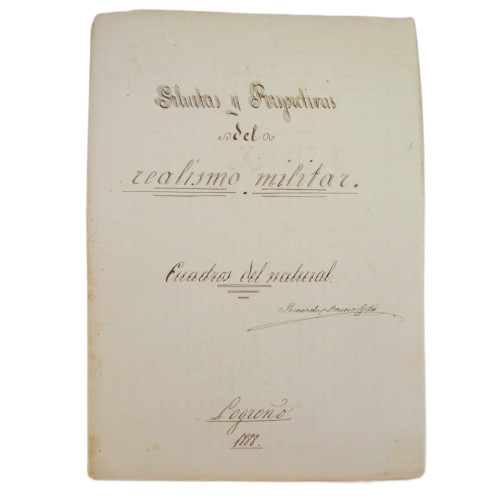 Siluetas y Perspectivas
del
realismo militar.
Cuadros del natural.
Ricardo
Logroño